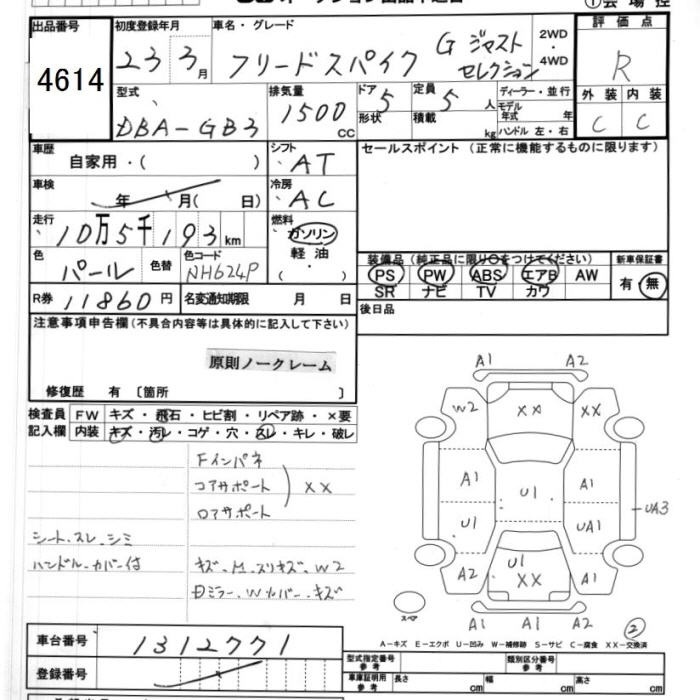 ① 会場控
出品番号 初度登録年月 車名・グレード 2WD・4WD 評価点
4614 23 3月 フリードスパイク G ジャストセレクション R
型式 排気量 ドア 5 定員 5人 ディーラー・並行 外装 内装
DBA-GB3 1500cc 形状 積載 kg モデル年式 年 ハンドル 左・右 C C
車歴 自家用・( ) シフト AT セールスポイント(正常に機能するものに限ります)
車検 年 月( 日) 冷房 AC
走行 10万5千193km 燃料 ガソリン 軽油 ( ・ )
色 パール 色替 色コード NH624P
装備品(純正品に限り○をつけてください) 新車保証書
PS PW ABS エアB AW 有・無
SR ナビ TV カワ
R券 11860円 名変通知期限 月 日 後日品
注意事項申告欄(不具合内容等は具体的に記入して下さい)
原則ノークレーム
修復歴 有 〔箇所 〕
検査員記入欄 FW キズ・飛石・ヒビ割・リペア跡・×要
内装 キズ・汚レ・コゲ・穴・スレ・キレ・破レ
Fインパネ
コアサポート XX
ロアサポート
シート.スレ.シミ
ハンドル.カバー付 キズ.M.スリキズ.W2
Dミラー.Wカバー.キズ
A1 A2
W2 XX XX
A1 U1 A1
U1 UA1 UA3
A2 U1 XX A1
A1 A1 A2
スペア ②
A-キズ E-エクボ U-凹み W-補修跡 S-サビ C-腐食 XX-交換済
車台番号 1312771
登録番号
型式指定番号 参考 類別区分番号 参考
車庫証明用 参考 長さ cm 幅 cm 高さ cm